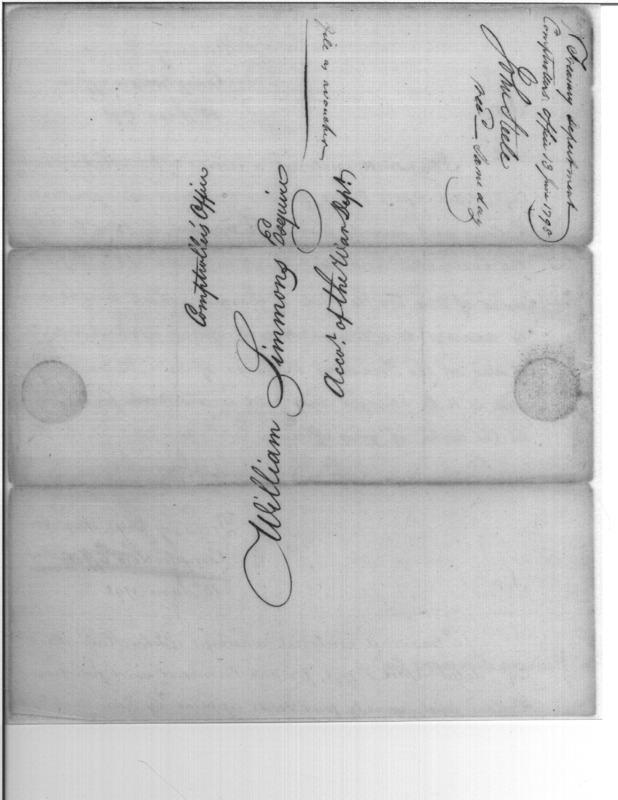 Treasury department
Comptrollers Office 13 June 1798
John Steele
recd. Same day
Comptrollers Office
William Simmons Esquire
Accot. of the War Dept.